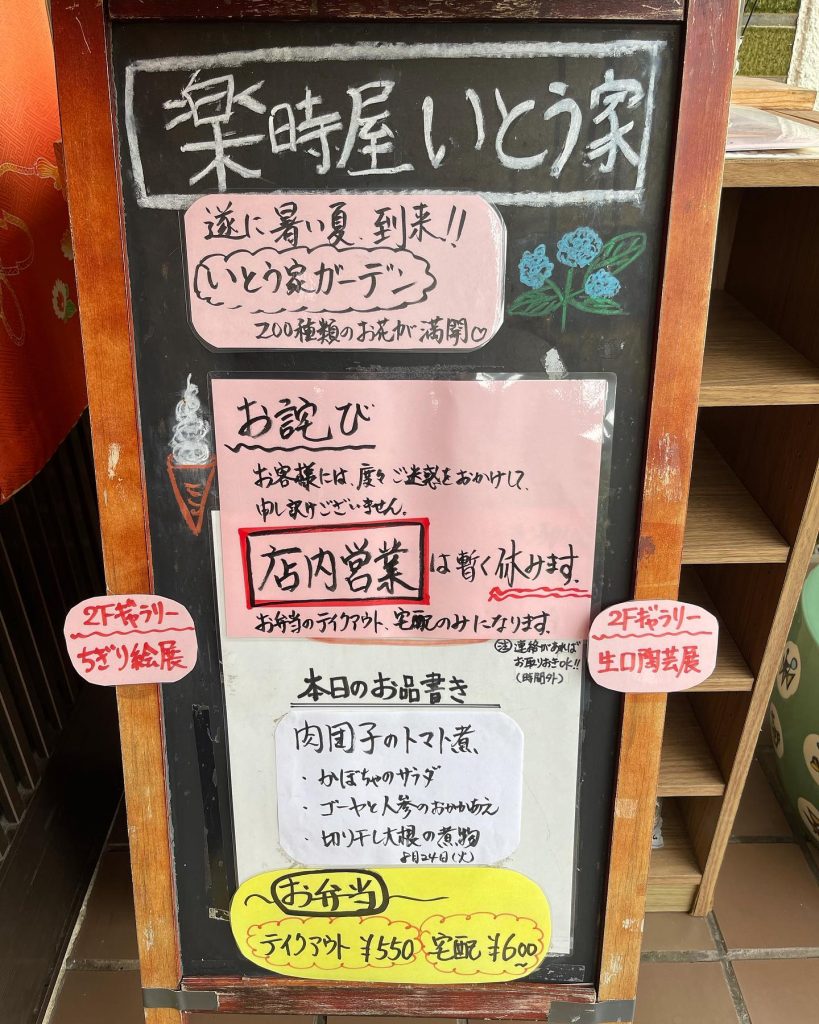 楽時屋いとう家
遂に暑い夏、到来!!
いとう家ガーデン
200種類のお花が満開♡
お詫び
お客様には、度々ご迷惑をおかけして、
申し訳ございません。
店内営業は暫く休みます。
お弁当のテイクアウト、宅配のみになります。
㊟連絡があれば
お取りおきOK!!
(時間外)
2Fギャラリー
ちぎり絵展
2Fギャラリー
生口陶芸展
本日のお品書き
肉団子のトマト煮
・かぼちゃのサラダ
・ゴーヤと人参のおかかあえ
・切り干し大根の煮物
8月24日(火)
お弁当
テイクアウト ¥550 宅配 ¥600~